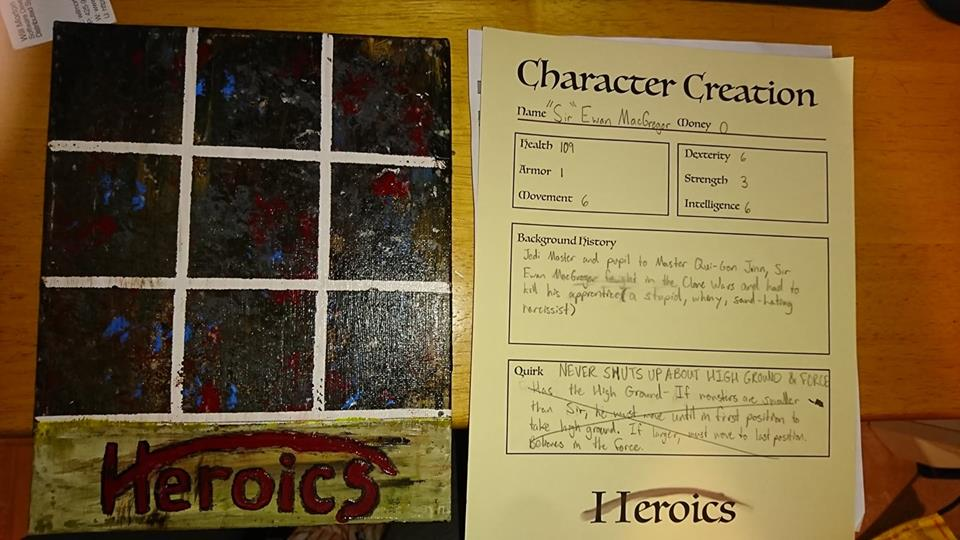 Heroics
Character Creation
Name "Sir" Ewan MacGregor Money 0
Health 109
Armor 1
Movement 6
Dexterity 6
Strength 3
Intelligence 6
Background History
Jedi Master and pupil to Master Qui-Gon Jinn, Sir
Ewan MacGregor fought in the Clone Wars and had to
kill his apprentice (a stupid, whiny, sand-hating
narcissist)
Quirk NEVER SHUTS UP ABOUT HIGH GROUND & FORCE
Has the High Ground- If monsters are smaller
than Sir, he must move until in first position to
take high ground. If larger, must move to last position.
Believes in the Force.
Heroics